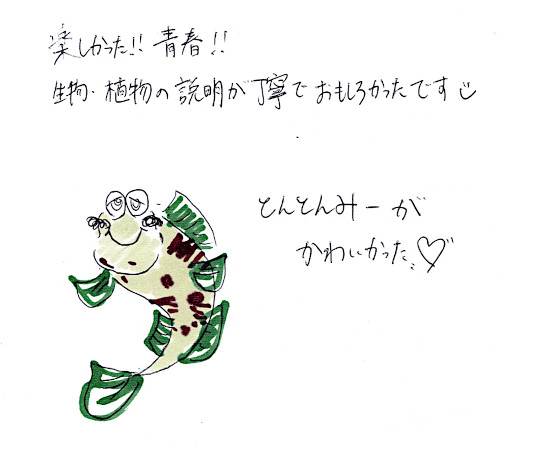 楽しかった!! 青春!!
生物・植物の説明が丁寧でおもしろかったです
とんとんみーが
かわいかった♡